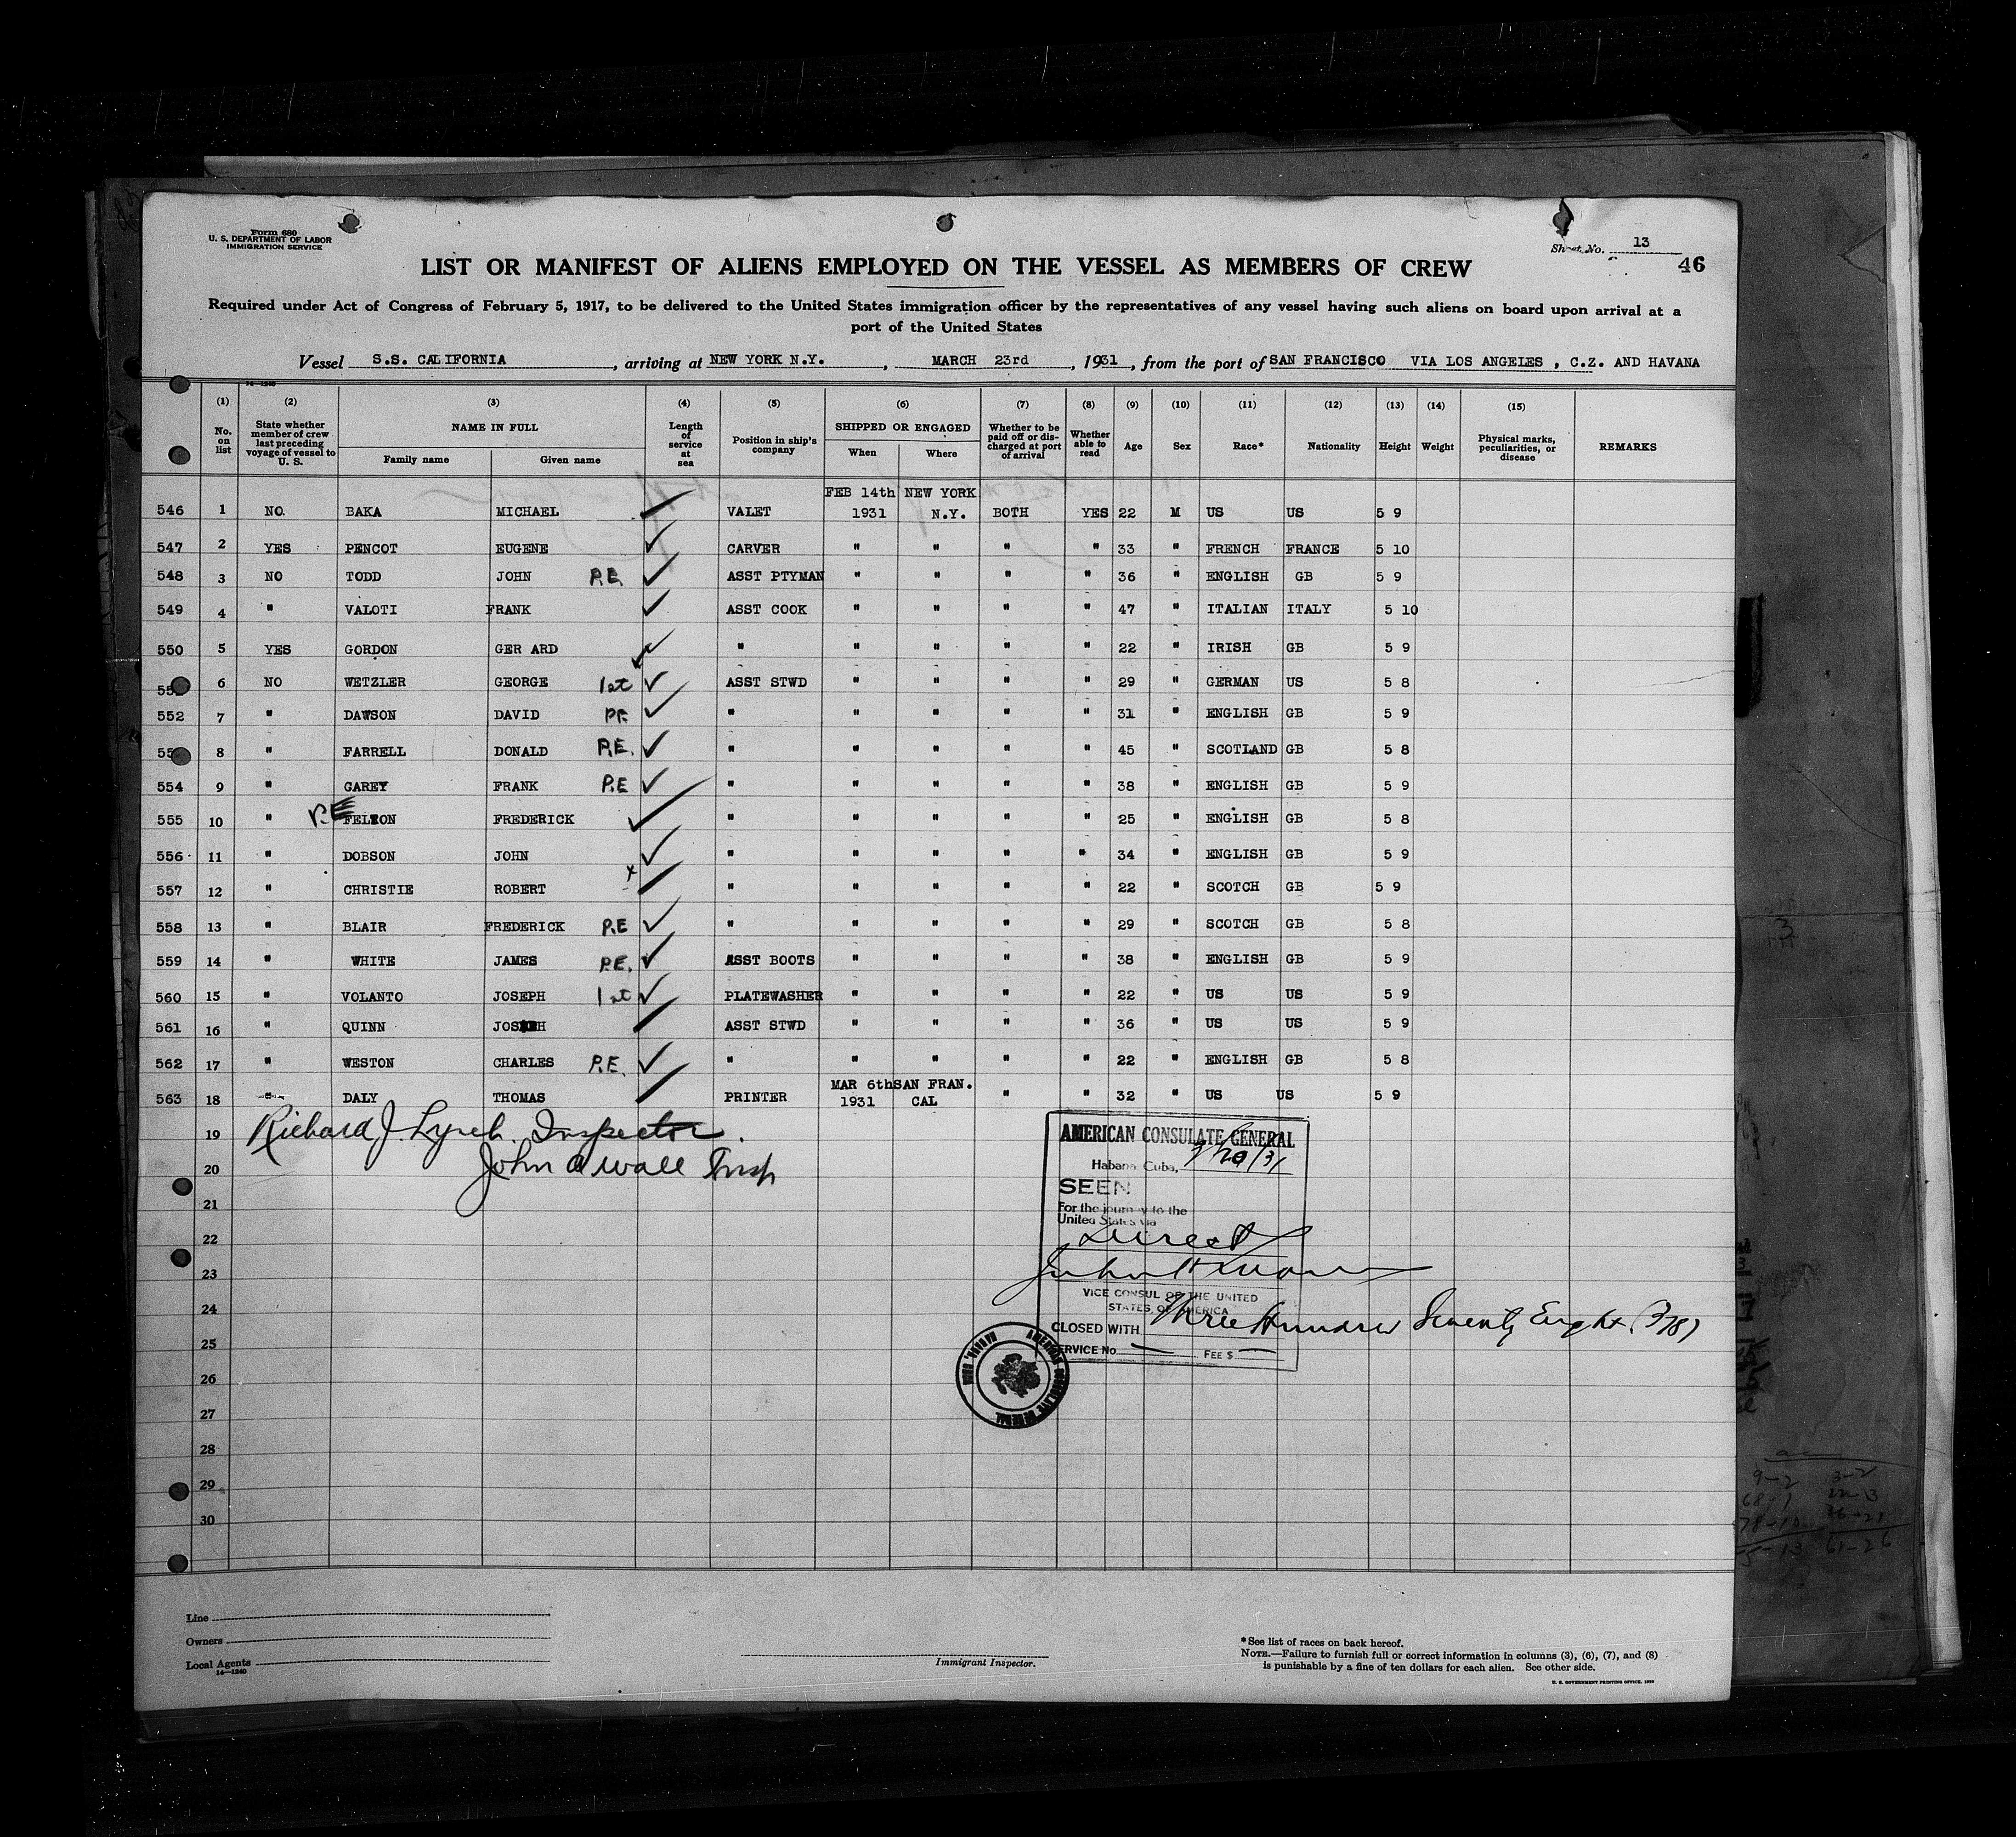 Form 680
U. S. DEPARTMENT OF LABOR
IMMIGRATION SERVICE
Sheet No. 13
46
LIST OR MANIFEST OF ALIENS EMPLOYED ON THE VESSEL AS MEMBERS OF CREW
Required under Act of Congress of February 5, 1917, to be delivered to the United States immigration officer by the representatives of any vessel having such aliens on board upon arrival at a
port of the United States
Vessel S.S. CALIFORNIA , arriving at NEW YORK N.Y. , MARCH 23rd , 1931 , from the port of SAN FRANCISCO VIA LOS ANGELES , C.Z. AND HAVANA
14—1240
(1) (2) (3) (4) (5) (6) (7) (8) (9) (10) (11) (12) (13) (14) (15)
No. on list State whether member of crew last preceding voyage of vessel to U. S. NAME IN FULL Family name Given name Length of service at sea Position in ship's company SHIPPED OR ENGAGED When Where Whether to be paid off or discharged at port of arrival Whether able to read Age Sex Race* Nationality Height Weight Physical marks, peculiarities, or disease REMARKS
FEB 14th NEW YORK
546 1 NO. BAKA MICHAEL VALET 1931 N.Y. BOTH YES 22 M US US 5 9
547 2 YES PENCOT EUGENE CARVER " " " " 33 " FRENCH FRANCE 5 10
548 3 NO TODD JOHN P.E. ASST PTYMAN " " " " 36 " ENGLISH GB 5 9
549 4 " VALOTI FRANK ASST COOK " " " " 47 " ITALIAN ITALY 5 10
550 5 YES GORDON GER ARD " " " " " 22 " IRISH GB 5 9
6 NO WETZLER GEORGE 1st ASST STWD " " " " 29 " GERMAN US 5 8
552 7 " DAWSON DAVID P.E. " " " " " 31 " ENGLISH GB 5 9
8 " FARRELL DONALD P.E. " " " " " 45 " SCOTLAND GB 5 8
554 9 " GAREY FRANK P.E " " " " " 38 " ENGLISH GB 5 9
555 10 " P.E FELTON FREDERICK " " " " " 25 " ENGLISH GB 5 8
556 11 " DOBSON JOHN " " " " " 34 " ENGLISH GB 5 9
557 12 " CHRISTIE ROBERT x " " " " " 22 " SCOTCH GB 5 9
558 13 " BLAIR FREDERICK P.E " " " " " 29 " SCOTCH GB 5 8
559 14 " WHITE JAMES P.E. ASST BOOTS " " " " 38 " ENGLISH GB 5 9
560 15 " VOLANTO JOSEPH 1st PLATEWASHER " " " " 22 " US US 5 9
561 16 " QUINN JOSEPH ASST STWD " " " " 36 " US US 5 9
562 17 " WESTON CHARLES P.E. " " " " " 22 " ENGLISH GB 5 8
MAR 6th SAN FRAN.
563 18 " DALY THOMAS PRINTER 1931 CAL " " 32 " US US 5 9
19 Richard J. Lynch. Inspector.
20 John A Wall Insp
21
22
23
24
25
26
27
28
29
30
AMERICAN CONSULATE GENERAL
Habana Cuba, 3/20/31
SEEN
For the journey to the
United States via
Direct
VICE CONSUL OF THE UNITED
STATES OF AMERICA
CLOSED WITH Three Hundred Seventy Eight (378)
SERVICE No. FEE $
AMERICAN CONSULATE GENERAL
HABANA, CUBA
Line
Owners
Local Agents
14—1240
Immigrant Inspector.
*See list of races on back hereof.
NOTE.—Failure to furnish full or correct information in columns (3), (6), (7), and (8)
is punishable by a fine of ten dollars for each alien. See other side.
9-2 3-2
68-1
78-10 36-21
61-26